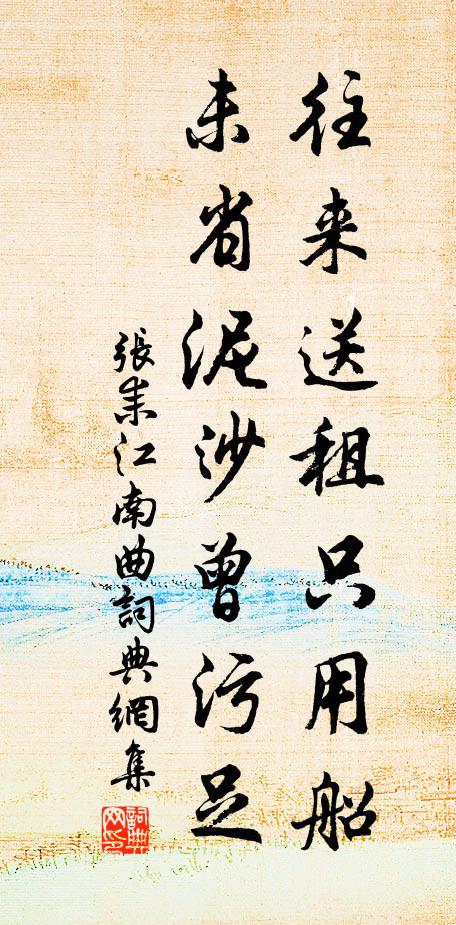 往来送租只用船
未省泥沙曾污足
張耒江南曲詞典網集
詞典网印